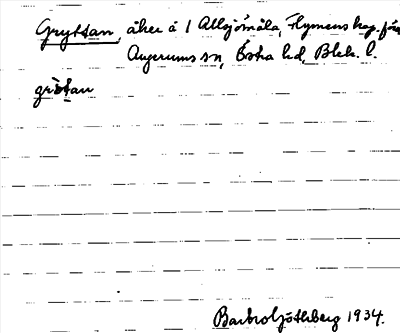 Gryttan, åker å 1 Allsjömåla, Flymens kap. förs.
Augerums sn, Östra hd, Blek. l.
grötan
Barbro Göthberg 1934.